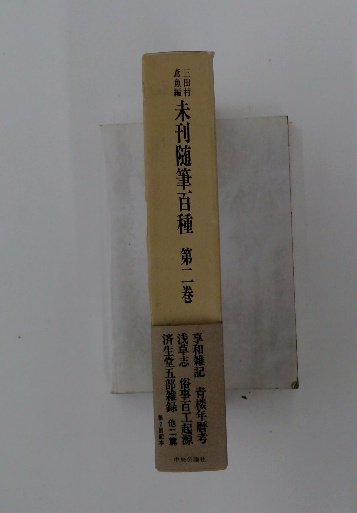 三田村
鳶魚編
未刊随筆百種 第二巻
享和雑記 青楼年暦考
浅草志 俗事百工起源
済生堂五部雑録 他二篇
第2回配本
中央公論社